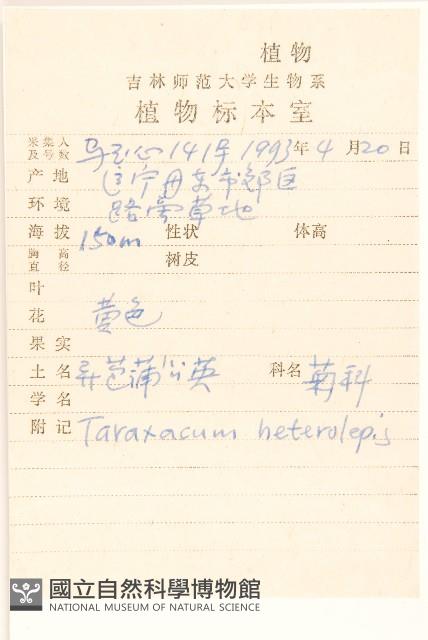 植物
吉林师范大学生物系
植物标本室
采集人及号数 141号 1993年 4月20日
产地 辽宁丹东市郊区
环境 路旁草地
海拔 150m 性状 体高
胸高直径 树皮
叶
花 黄色
果实
土名 异苞蒲公英 科名 菊科
学名
附记 Taraxacum heterolepis
國立自然科學博物館
NATIONAL MUSEUM OF NATURAL SCIENCE